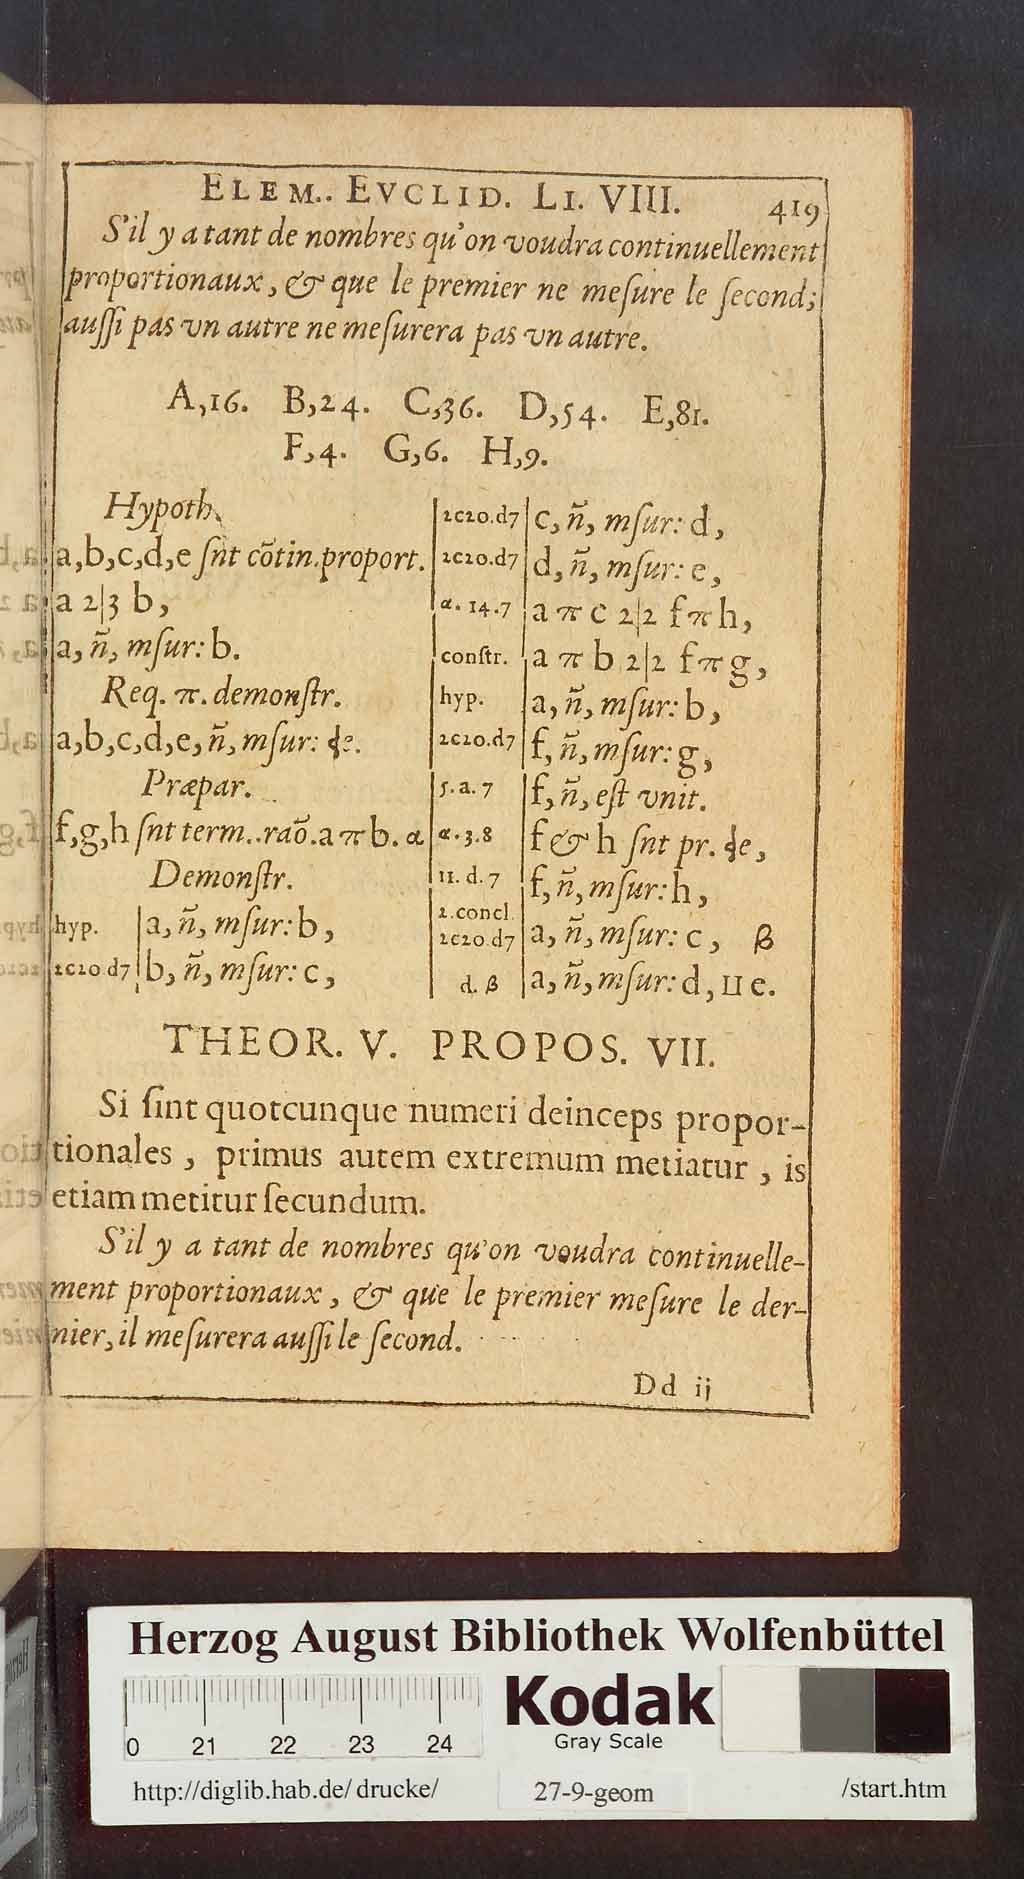 ELEM.. EVCLID. LI. VIII. 419
S'il y a tant de nombres qu'on voudra continuellement
proportionaux, & que le premier ne meſure le ſecond;
auſſi pas vn autre ne meſurera pas vn autre.
A,16. B,24. C,36. D,54. E,81.
F,4. G,6. H,9.
Hypoth.
a,b,c,d,e ſnt cõtin.proport.
a 2|3 b,
a, ñ, mſur: b.
Req. π. demonſtr.
a,b,c,d,e, ñ, mſur: ɖe.
Præpar.
f,g,h ſnt term..raõ.a π b. α
Demonſtr.
hyp. | a, ñ, mſur: b,
2c20 d7 | b, ñ, mſur: c,
2c20.d7 | c, ñ, mſur: d,
2c20.d7 | d, ñ, mſur: e,
α. 14.7 | a π c 2|2 f π h,
conſtr. | a π b 2|2 f π g,
hyp. | a, ñ, mſur: b,
2c20.d7 | f, ñ, mſur: g,
5. a. 7 | f, ñ, eſt vnit.
α. 3.8 | f & h ſnt pr. ɖe,
11. d. 7 | f, ñ, mſur: h,
2.concl.
2c20.d7 | a, ñ, mſur: c, β
d. β | a, ñ, mſur: d, II e.
THEOR. V. PROPOS. VII.
Si ſint quotcunque numeri deinceps propor-
tionales, primus autem extremum metiatur, is
etiam metitur ſecundum.
S'il y a tant de nombres qu'on voudra continuelle-
ment proportionaux, & que le premier meſure le der-
nier, il meſurera auſſi le ſecond.
Dd ij
Herzog August Bibliothek Wolfenbüttel
0 21 22 23 24
Kodak
Gray Scale
http://diglib.hab.de/ drucke/ 27-9-geom /start.htm